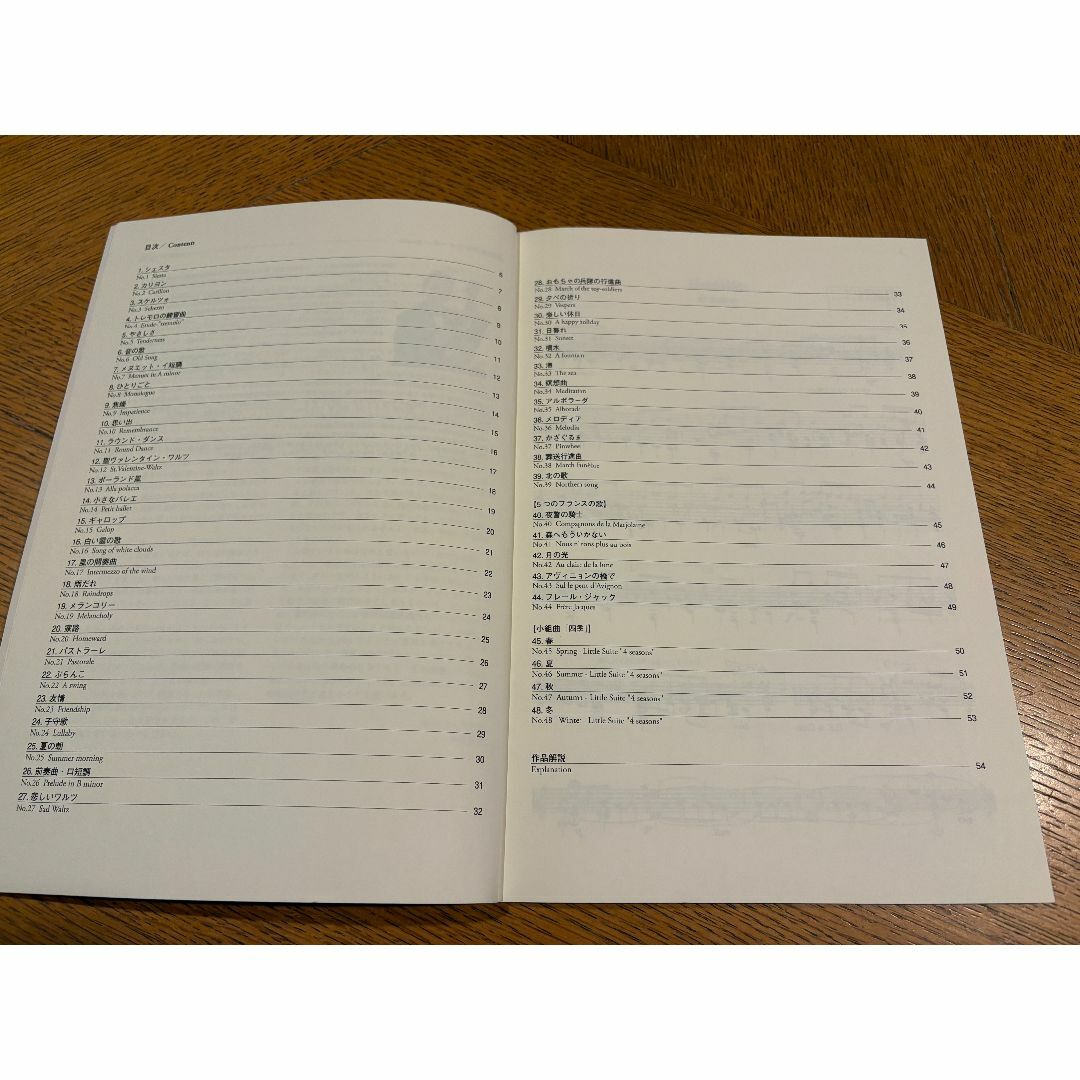 目次／ Contents
1. シェスタ
No.1 Siesta 6
2. カリヨン
No.2 Carillon 7
3. スケルツォ
No.3 Scherzo 8
4. トレモロの練習曲
No.4 Etude-"tremolo" 9
5. やさしさ
No.5 Tenderness 10
6. 昔の歌
No.6 Old Song 11
7. メヌエット・イ短調
No.7 Menuet in A minor 12
8. ひとりごと
No.8 Monologue 13
9. 焦燥
No.9 Impatience 14
10. 思い出
No.10 Remembrance 15
11. ラウンド・ダンス
No.11 Round Dance 16
12. 聖ヴァレンタイン・ワルツ
No.12 St.Valentine-Waltz 17
13. ポーランド風
No.13 Alla polacca 18
14. 小さなバレエ
No.14 Petit ballet 19
15. ギャロップ
No.15 Galop 20
16. 白い雲の歌
No.16 Song of white clouds 21
17. 風の間奏曲
No.17 Intermezzo of the wind 22
18. 雨だれ
No.18 Raindrops 23
19. メランコリー
No.19 Melancholy 24
20. 家路
No.20 Homeward 25
21. パストラーレ
No.21 Pastorale 26
22. ぶらんこ
No.22 A swing 27
23. 友情
No.23 Friendship 28
24. 子守歌
No.24 Lullaby 29
25. 夏の朝
No.25 Summer morning 30
26. 前奏曲・ロ短調
No.26 Prelude in B minor 31
27. 悲しいワルツ
No.27 Sad Waltz 32
28. おもちゃの兵隊の行進曲
No.28 March of the toy-soldiers 33
29. 夕べの祈り
No.29 Vespers 34
30. 楽しい休日
No.30 A happy holiday 35
31. 日暮れ
No.31 Sunset 36
32. 噴水
No.32 A fountain 37
33. 海
No.33 The sea 38
34. 瞑想曲
No.34 Meditation 39
35. アルボラーダ
No.35 Alborada 40
36. メロディア
No.36 Melodia 41
37. かざぐるま
No.37 Pinwheel 42
38. 葬送行進曲
No.38 March funèbre 43
39. 北の歌
No.39 Northern song 44
【5つのフランスの歌】
40. 夜警の騎士
No.40 Compagnons de la Marjolaine 45
41. 森へもういかない
No.41 Nous n'irons plus au bois 46
42. 月の光
No.42 Au clair de la lune 47
43. アヴィニョンの橋で
No.43 Sul le pont d'Avignon 48
44. フレール・ジャック
No.44 Frère Jaques 49
【小組曲「四季」】
45. 春
No.45 Spring - Little Suite "4 seasons" 50
46. 夏
No.46 Summer - Little Suite "4 seasons" 51
47. 秋
No.47 Autumn - Little Suite "4 seasons" 52
48. 冬
No.48 Winter - Little Suite "4 seasons" 53
作品解説
Explanation 54